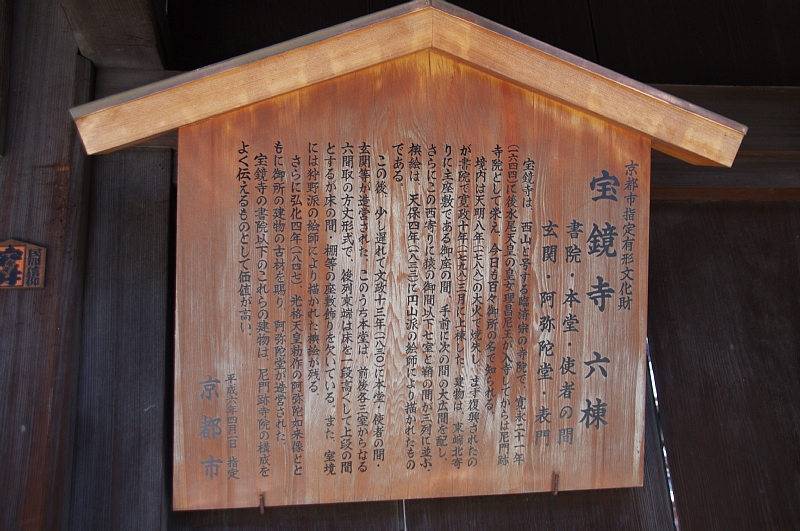 京都市指定有形文化財
宝鏡寺 六棟
書院・本堂・使者の間
玄関・阿弥陀堂・表門
宝鏡寺は、西山と号する臨済宗の寺院で、寛永二十一年
(一六四四)に後水尾天皇の皇女理昌尼王が入寺してからは尼門跡
寺院として栄え、今日も百々御所の名で知られる。
境内は天明八年(一七八八)の大火で焼失し、まず復興されたの
が書院で寛政十年(一七九八)三月に上棟した。建物は、東端北寄
りに主座敷である御座の間、手前に次の間の大広間を配し、
さらにこの西寄りに猿の御間以下七室と鞘の間が三列に並ぶ。
襖絵は、天保四年(一八三三)に円山派の絵師により描かれたもの
である。
この後、少し遅れて文政十三年(一八三〇)に本堂・使者の間・
玄関等が造営された。このうち本堂は、前後各三室からなる
六間取の方丈形式で、後列東端は床を一段高くして上段の間
とするが床の間、棚等の座敷飾りを欠いている。また、室境
には狩野派の絵師により描かれた襖絵が残る。
さらに弘化四年(一八四七)、光格天皇勅作の阿弥陀如来像とと
もに御所の建物の古材を賜り、阿弥陀堂が造営された。
宝鏡寺の書院以下のこれらの建物は、尼門跡寺院の構成を
よく伝えるものとして価値が高い。
平成六年四月一日 指定
京都市